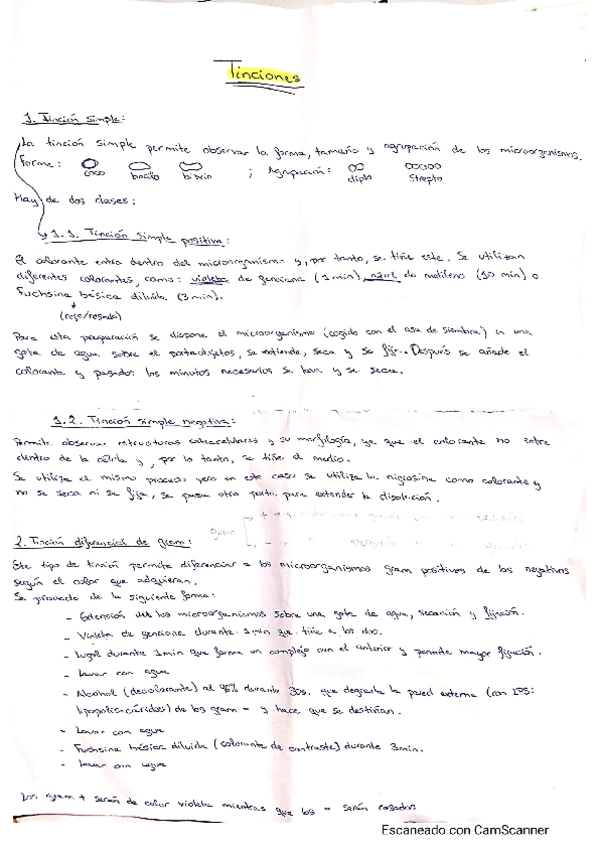 Tinciones
1. Tinción simple:
La tinción simple permite observar la forma, tamaño y agrupación de los microorganismos.
Forma: coco bacilo vibrio ; Agrupación: diplo strepto
Hay de dos clases:
1.1. Tinción simple positiva:
El colorante entra dentro del microorganismo y, por tanto, se tiñe este. Se utilizan
diferentes colorantes, como: violeta de genciana (1 min), azul de metileno (10 min) o
Fuchsina básica diluida (3 min).
(rojo/rosado)
Para esta preparación se dispone el microorganismo (cogido con el asa de siembra) en una
gota de agua sobre el portaobjetos, se extiende, seca y se fija. Después se añade el
colorante y pasados los minutos necesarios se lava y se seca.
1.2. Tinción simple negativa:
Permite observar estructuras extracelulares y su morfología, ya que el colorante no entra
dentro de la célula y, por lo tanto, se tiñe el medio.
Se utiliza el mismo proceso pero en este caso se utiliza la nigrosina como colorante y
ni se seca ni se fija, se pasa otro porta para extender la disolución.
2. Tinción diferencial de gram:
Este tipo de tinción permite diferenciar a los microorganismos gram positivos de los negativos
según el color que adquieran.
Se procede de la siguiente forma:
- Extensión del los microorganismos sobre una gota de agua, secación y fijación.
- Violeta de genciana durante 1 min que tiñe a los dos.
- Lugol durante 1 min que forma un complejo con el anterior y permite mayor fijación.
- Lavar con agua
- Alcohol (decolorante) al 96% durante 30s. que degrada la pared externa (con LPS:
lipopolisacáridos) de los gram - y hace que se destiñan.
- Lavar con agua
- Fuchsina básica diluida (colorante de contraste) durante 3 min.
- Lavar con agua
Los gram + serán de color violeta mientras que los - serán rosados
Escaneado con CamScanner